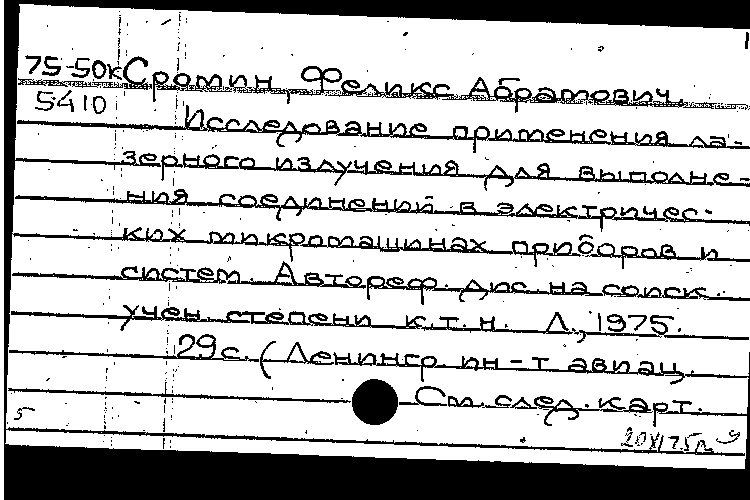 75-50к Сромин, Феликс Абрамович.
5410
Исследование применения ла-
зерного излучения для выполне-
ния соединений в электричес-
ких микромашинах приборов и
систем. Автореф. дис. на соиск.
учен. степени к.т.н. Л., 1975.
29 с. (Ленингр. ин-т авиац.
См. след. карт.
5